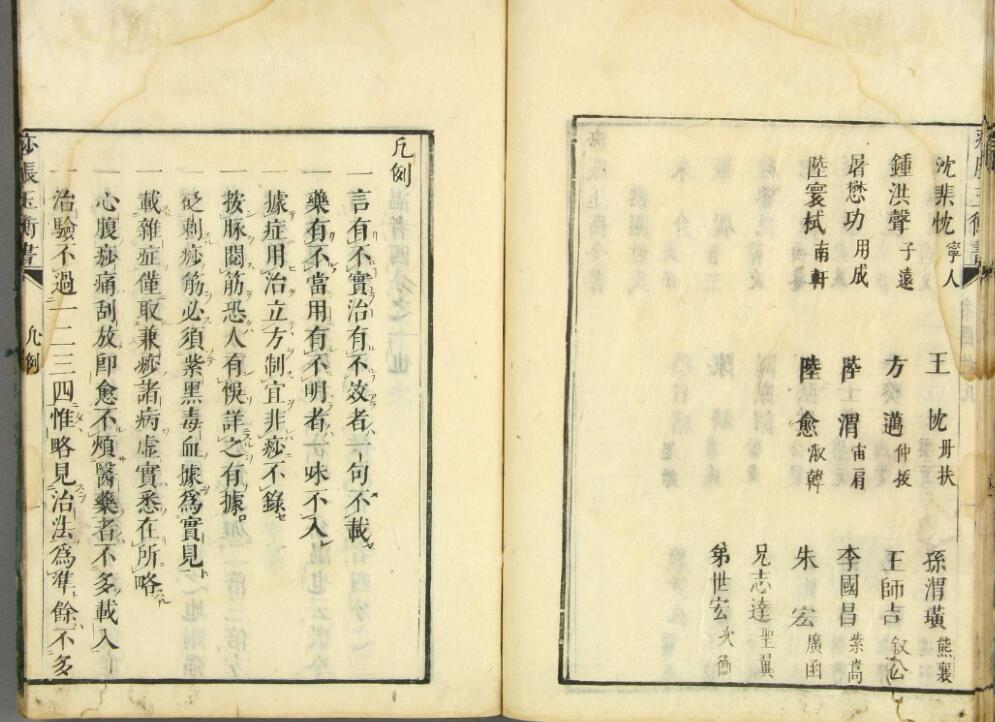 沈棐忱 寧人
王忱 丹扶
孫渭璜 熊襄
鍾洪聲 子遠
方邁 仲扳
王師吉 叙公
屠懋功 用成
陸渭 宙肩
李國昌 紫嵩
陸寰栻 南軒
陸愈 淑韓
朱宏 廣函
兄志達 聖翼
弟世宏 次衡
凡例
一言有不實治有不效者一句不載
一藥有不當用有不明者一味不入
一據症用治立方制宜非痧不錄
一按脉閱筋恐人有悞詳之有據
一砭刺痧筋必須紫黑毒血據爲實見
一載雜症僅取兼痧諸病虚實悉在所略
一心腹痧痛刮放即愈不煩醫藥者不多載入
一治驗不過一二三四惟略見治法爲準餘不多
痧脹玉衡書
凡例